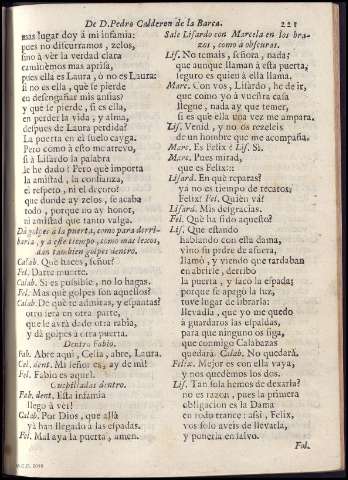 De D. Pedro Calderon de la Barca. 221
mas lugar doy à mi infamia:
pues no discurramos, zelos,
sino à vèr la verdad clara
caminèmos mas aprisa,
pues ella es Laura, ò no es Laura:
si no es ella, què se pierde
en desengañar mis ansias?
y què se pierde, si es ella,
en perder la vida, y alma,
despues de Laura perdida?
La puerta en el suelo cayga.
Pero cómo à esto me atrevo,
si à Lisardo la palabra
le he dado? Pero què importa
la amistad, la confianza,
el respeto, ni el decoro?
que donde ay zelos, se acaba
todo, porque no ay honor,
ni amistad que tanto valga.
Dà golpes à la puerta, como para derri-
barla, y à este tiempo, como mas lexos,
dan tambien golpes dentro.
Calab. Què haces, señor?
Fel. Darte muerte.
Calab. Si es possible, no lo hagas.
Fel. Mas què golpes son aquellos?
Calab. De què te admiras, y espantas?
otro serà en otra parte,
que le avrà dado otra rabia,
y dà golpes à otra puerta.
Dentro Fabio.
Fab. Abre aqui, Celia, abre, Laura.
Cel. dent. Mi señor es, ay de mi!
Fel. Fabio es aquel.
Cuchilladas dentro.
Fab. dent. Esta infamia
llego à vèr!
Calab. Por Dios, que allà
yà han llegado à las espadas.
Fel. Mal aya la puerta, amen.
Sale Lisardo con Marcela en los bra-
zos, como à obscuras.
Lis. No temais, señora, nada;
que aunque llaman à esta puerta,
seguro es quien à ella llama.
Marc. Con vos, Lisardo, he de ir,
que como yo à vuestra casa
llegue, nada ay que temer,
si es què ella una vez me ampara.
Lis. Venid, y no os rezeleis
de un hombre que me acompaña.
Marc. Es Felix? Lis. Si.
Marc. Pues mirad,
que es Felix:::
Lisard. En què reparas?
ya no es tiempo de recatos,
Felix? Fel. Quièn và?
Lisard. Mis desgracias.
Fel. Què ha sido aquesto?
Lis. Que estando
hablando con ella dama,
vino su padre de afuera,
llamò, y viendo que tardaban
en abrirle, derribò
la puerta, y sacò la espada;
porque se apagò la luz,
tuve lugar de librarla:
llevadla, que yo me quedo
à guardaros las espaldas,
para que ninguno os siga,
que conmigo Calabazas
quedarà. Calab. No quedarà.
Felix. Mejor es con ella vaya,
y nos quedèmos los dos.
Lis. Tan sola hemos de dexarla?
no es razon, pues la primera
obligacion es la Dama
en todo trance: assi, Felix,
vos solo aveis de llevarla,
y ponerla en salvo.
Fel.